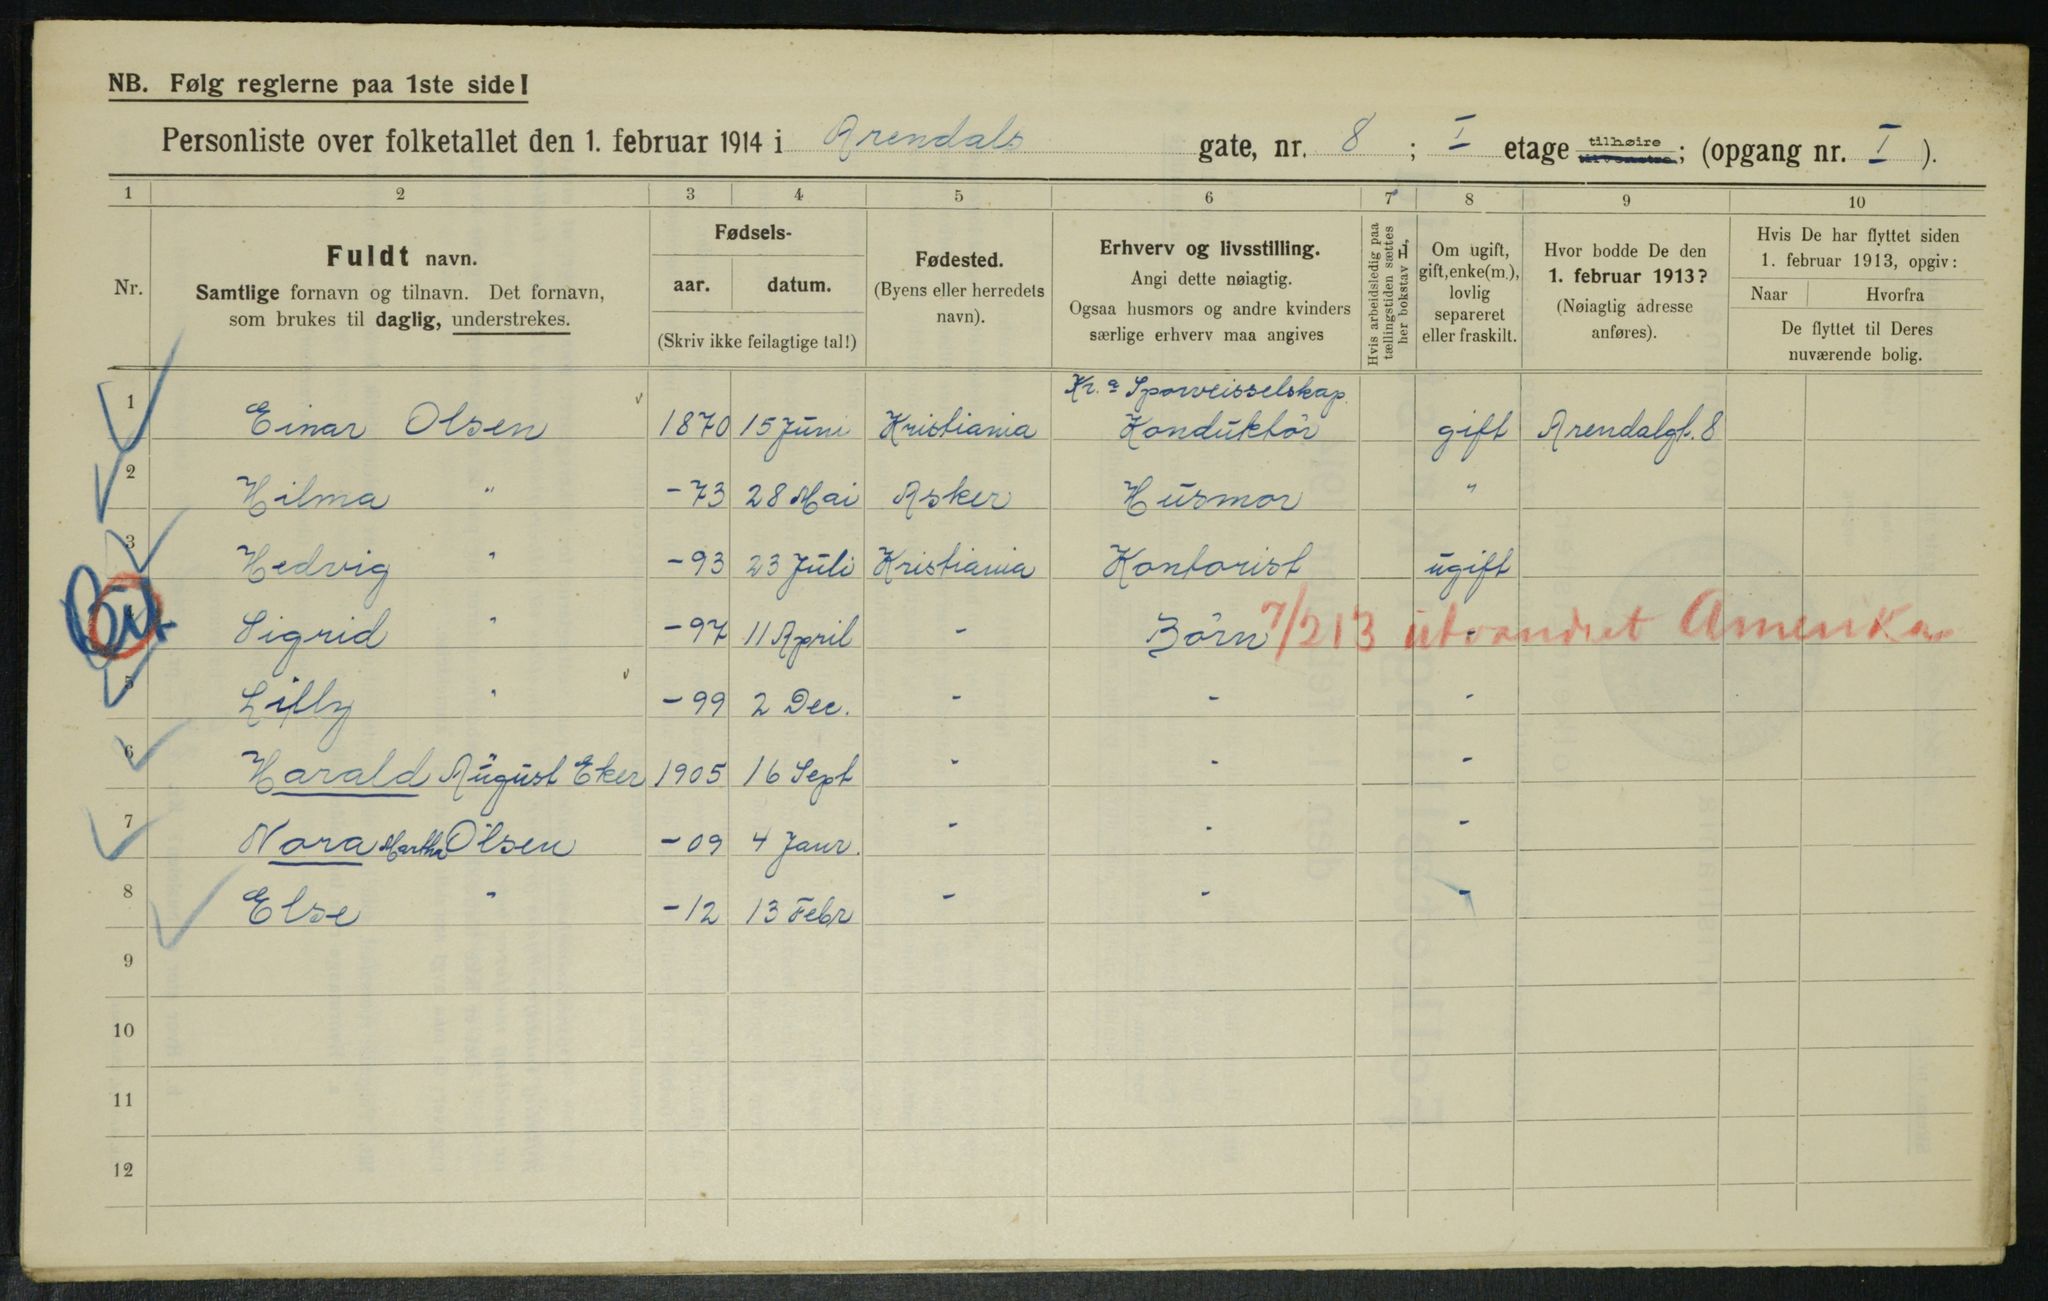 NB. Følg reglerne paa 1ste side!
Personliste over folketallet den 1. februar 1914 i Arendals gate, nr. 8 ; I etage tilhøire ; (opgang nr. I ).
1 2 3 4 5 6 7 8 9 10
Nr.
Fuldt navn.
Samtlige fornavn og tilnavn. Det fornavn,
som brukes til daglig, understrekes.
Fødsels-
aar. datum.
(Skriv ikke feilagtige tal!)
Fødested.
(Byens eller herredets
navn).
Erhverv og livsstilling.
Angi dette nøiagtig.
Ogsaa husmors og andre kvinders
særlige erhverv maa angives
Hvis arbeidsledig paa
tællingstiden sættes
her bokstav L.
Om ugift,
gift, enke(m.),
lovlig
separeret
eller fraskilt.
Hvor bodde De den
1. februar 1913?
(Nøiagtig adresse
anføres).
Hvis De har flyttet siden
1. februar 1913, opgiv:
Naar Hvorfra
De flyttet til Deres
nuværende bolig.
Kr.a Sporveisselskap.
1 Einar Olsen 1870 15 Juni Kristiania Konduktör gift Arendalgt. 8
2 Hilma " -73 28 Mai Asker Husmor "
3 Hedvig " -93 23 Juli Kristiania Kontorist ugift
Sigrid " -97 11 April - Börn 7/2 13 utvandret Amerika -
5 Lilly " -99 2 Dec. - - -
6 Harald August Eker 1905 16 Sept - - -
7 Nora Martha Olsen -09 4 Janr. - - -
8 Else " -12 13 Febr - - -
9
10
11
12